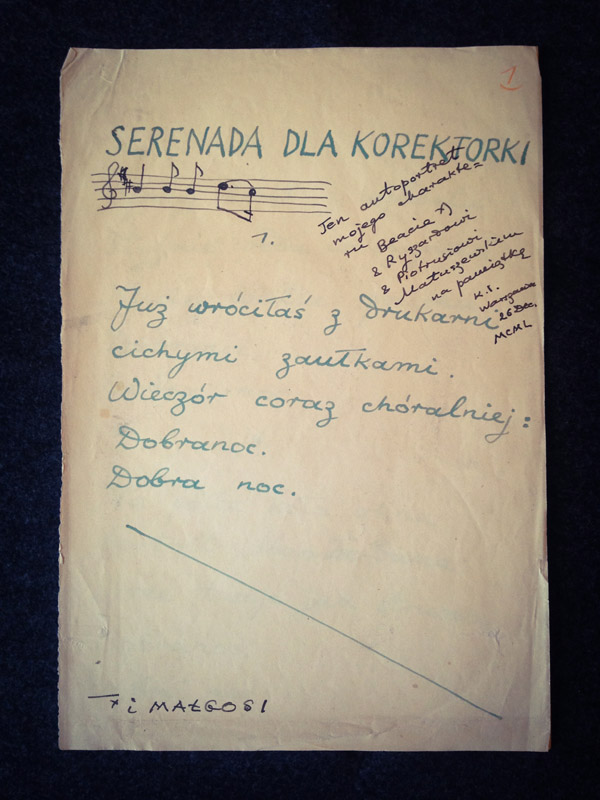 1
SERENADA DLA KOREKTORKI
Ten autoportret
mojego charakte=
ru Beacie x)
& Ryszardowi
& Piotrusiowi
Matuszewskim
na pamiątkę
K. I.
Warszawa
26 Dec.
MCML
1.
Już wróciłaś z drukarni
cichymi zaułkami.
Wieczór coraz chóralniej:
Dobranoc.
Dobra noc.
x i MAŁGOSI